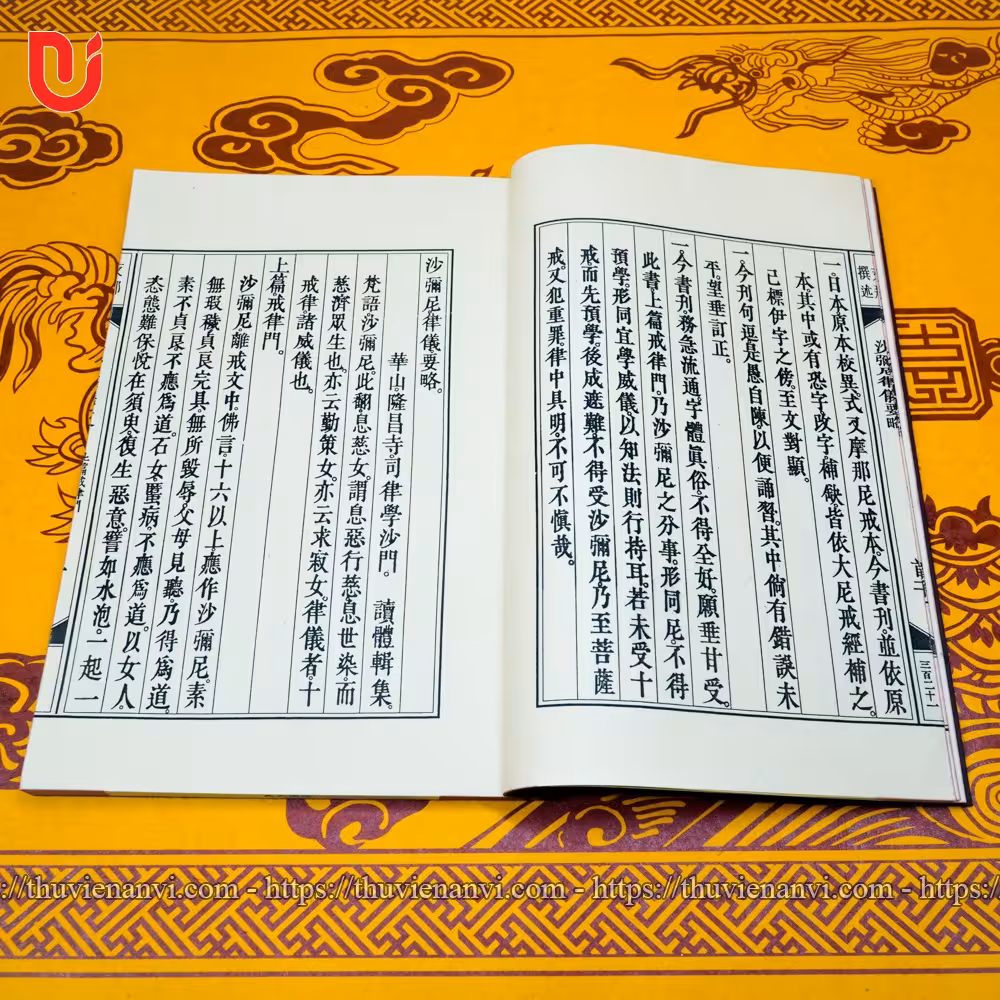 一。日本原本校異。式叉摩那尼戒本。今書刊。並依原
本。其中或有恐字改字。補缺。皆依大尼戒經補之。
已標伊字之傍。至文對顯。
一。今刊句逗。是愚自陳。以便誦習。其中倘有錯誤未
平。望垂訂正。
一。今書刊。務急流通。字體眞俗。不得全好。願垂甘受。
此書。上篇戒律門。乃沙彌尼之分事。形同尼。不得
預學。形同宜學威儀。以知法則行持耳。若未受十
戒。而先預學。後成遮難。不得受沙彌尼。乃至菩薩
戒。又犯重罪。律中具明。不可不愼哉。
沙彌尼律儀要略。
華山。隆昌寺。司律學沙門。 讀體輯集。
梵語沙彌尼。此翻息慈女。謂息惡行慈。息世染。而
慈濟眾生也。亦云勤策女。亦云求寂女。律儀者。十
戒律。諸威儀也。
上篇戒律門。
沙彌尼離戒文中。佛言。十六以上。應作沙彌尼。素
無瑕穢。貞良完具。無所毀辱。父母見聽。乃得爲道。
素不貞良。不應爲道。石女。嬰病。不應爲道。以女人。
态態難保。悅在須臾。復生惡意。譬如水泡。一起一
撰述
沙彌尼律儀要略
三百二十一
https://thuvienanvi.com - https://thuvienanvi.com - https://thuvienanvi.com -